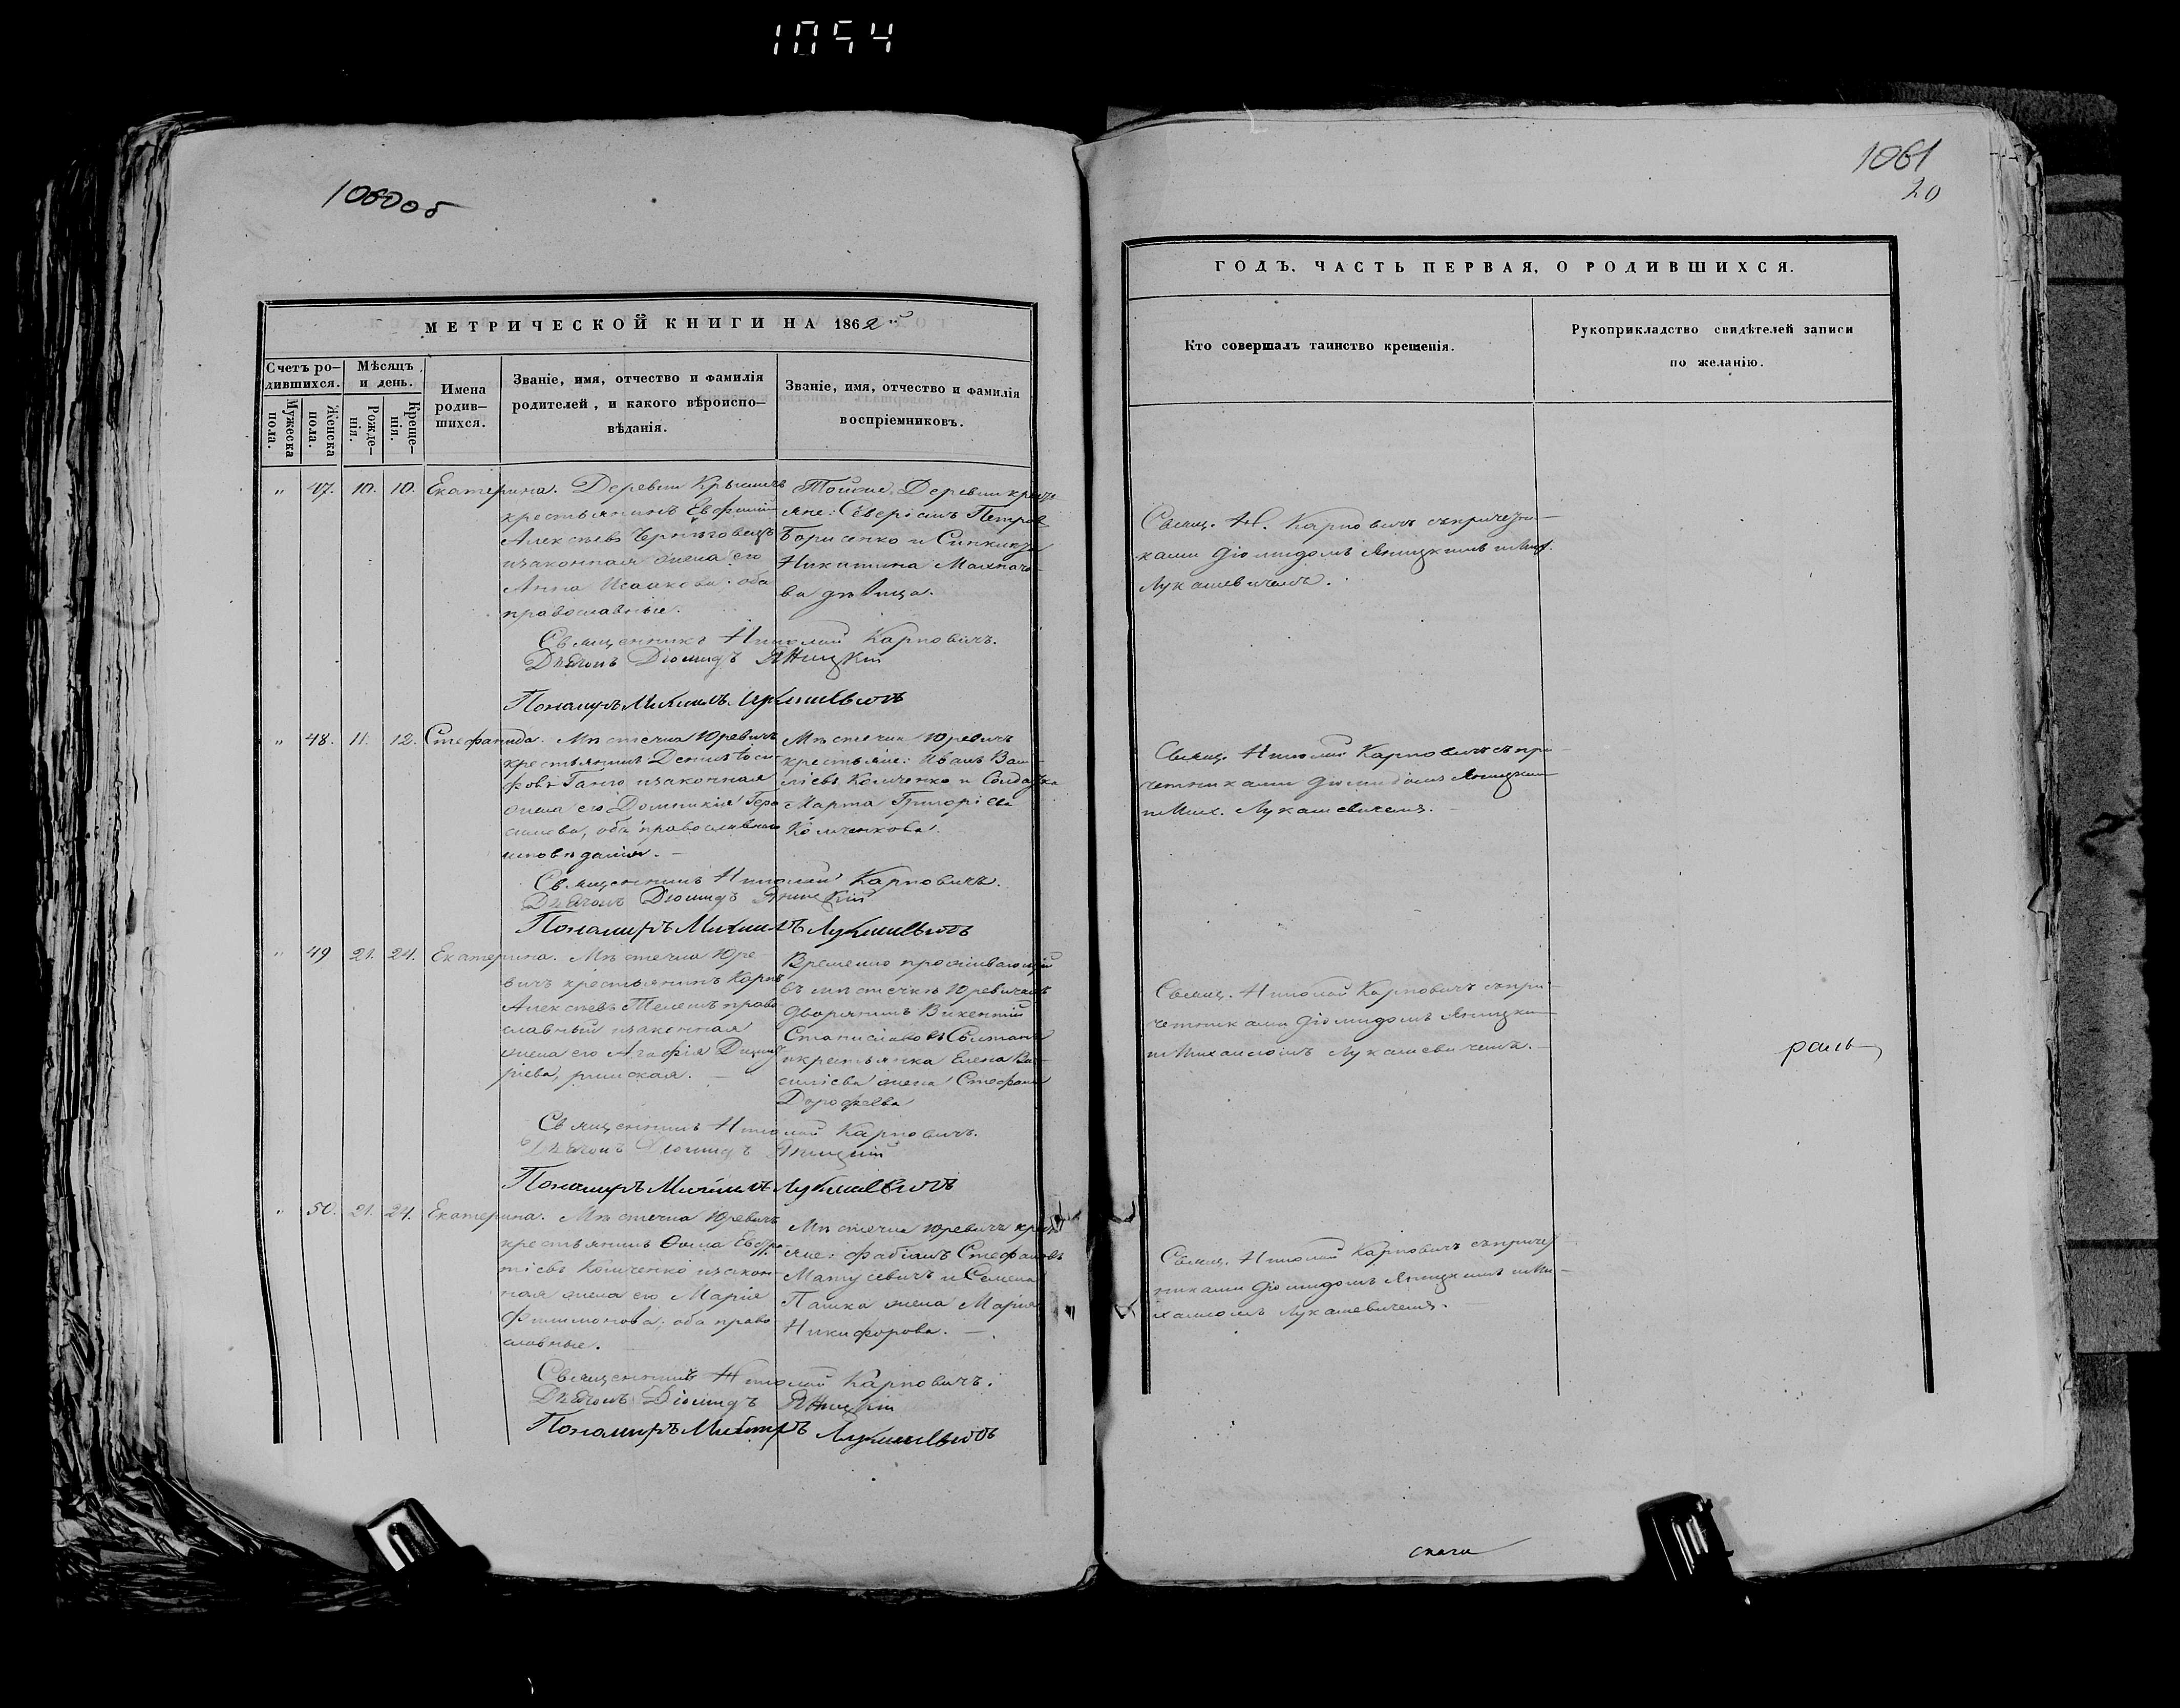 1054
1060об
МЕТРИЧЕСКОЙ КНИГИ НА 1862й
Счетъ ро-
дившихся.
Мѣсяцъ
и день.
Мужеска
пола.
Женска
пола.
Рожде-
нія.
Креще-
нія.
Имена
родив-
шихся.
Званіе, имя, отчество и фамилія
родителей, и какого вѣроиспо-
вѣданія.
Званіе, имя, отчество и фамилія
воспріемниковъ.
" 47. 10. 10. Екатерина.
Деревни
крестьянинъ Евфимій
Алексѣевъ
изаконная жена его
Анна Исаакова. оба
православные.
Тойже Деревни крестья
яне: Северіанъ Петровъ
Борисенко и
Никитина
ва дѣвица.
Священникъ Николай Карповичъ.
Дьячокъ Діомидъ Яницкій
Пономаръ Михаилъ Лукашевичъ
" 48. 11. 12. Стефанида.
Мѣстечка Юревичъ
крестьянинъ
фовъ изаконная
жена его Домникія Гера
симова, оба православнаго
исповѣданія.
Мѣстечка Юревичъ
крестьяне: Иванъ Васи
ліевъ и Солдатка
Марта Григоріева
Священникъ Николай Карповичъ.
Дьячокъ Діомидъ Яницкій
Пономаръ Михаилъ Лукашевичъ
" 49 21. 24. Екатерина.
Мѣстечка Юре
вичъ крестьянинъ Карпъ
Алексѣевъ право
славный изаконная
жена его Агафія Дмит
ріева, римская.
Временно проживающій
въ мѣстечкѣ Юревичахъ
дворянинъ Викентій
Станиславовъ
икрестьянка Елена Ва
силіева жена Стефана
Дорофеева
Священникъ Николай Карповичъ.
Дьячокъ Діомидъ Яницкій
Пономаръ Михаилъ Лукашевичъ
" 50. 21. 24. Екатерина.
Мѣстечка Юревичъ
крестьянинъ Ѳома
изакон
ная жена его Марія
Филимонова; оба право
славные.
Мѣстечка Юревичъ кресть
яне: Фабіанъ Стефановъ
Матусевичъ и Семена
Пашка жена Марія
Никифорова.
Священникъ Николай Карповичъ.
Дьячокъ Діомидъ Яницкій
Пономаръ Лукашевичъ
1061
20
ГОДЪ. ЧАСТЬ ПЕРВАЯ, О РОДИВШИХСЯ.
Кто совершалъ таинство крещенія.
Рукоприкладство свидѣтелей записи
по желанію.
Свящ. Н. Карповичъ съпричетни-
ками Діомидомъ Яницкимъ иМих.
Лукашевичемъ.
Свящ. Николай Карповичъ съпри-
четниками Діомидомъ Яницкимъ
иМих. Лукашевичемъ.
Свящ. Николай Карповичъ съпри-
четниками Діомидомъ Яницким
иМихаиломъ Лукашевичемъ.
Свящ. Николай Карповичъ съпричет
никами Діомидомъ Яницкимъ иМи-
хаиломъ Лукашевичемъ.